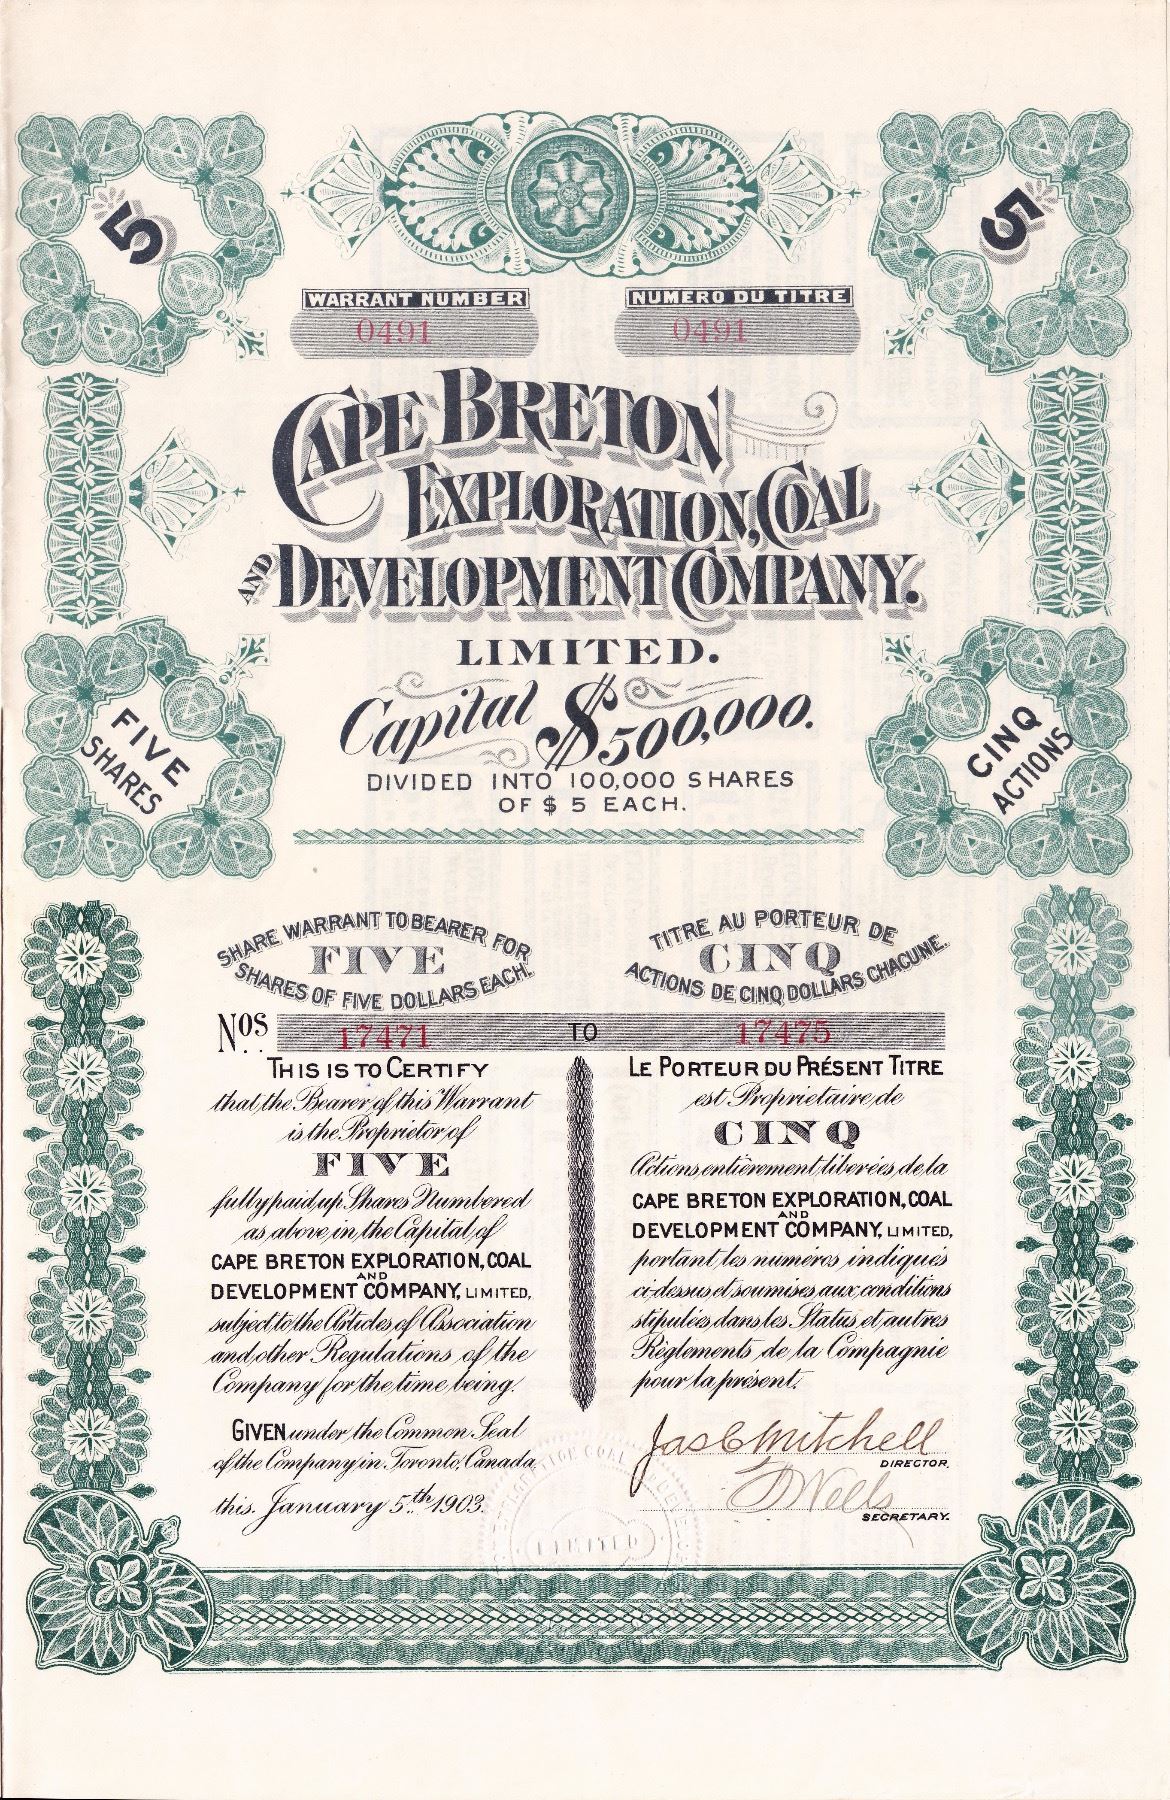 5
5
WARRANT NUMBER
0491
NUMERO DU TITRE
0491
CAPE BRETON
EXPLORATION, COAL
AND DEVELOPMENT COMPANY.
LIMITED.
Capital $500,000.
DIVIDED INTO 100,000 SHARES
OF $ 5 EACH.
FIVE
SHARES
CINQ
ACTIONS
SHARE WARRANT TO BEARER FOR
FIVE
SHARES OF FIVE DOLLARS EACH.
TITRE AU PORTEUR DE
CINQ
ACTIONS DE CINQ DOLLARS CHACUNE.
Nos 17471 TO 17475
THIS IS TO CERTIFY
that the Bearer of this Warrant
is the Proprietor of
FIVE
fully paid up Shares Numbered
as above in the Capital of
CAPE BRETON EXPLORATION, COAL
AND
DEVELOPMENT COMPANY, LIMITED,
subject to the Articles of Association
and other Regulations of the
Company for the time being.
GIVEN under the Common Seal
of the Company in Toronto, Canada
this January 5th 1903.
LE PORTEUR DU PRÉSENT TITRE
est Propriétaire de
CINQ
Actions entièrement libérées de la
CAPE BRETON EXPLORATION, COAL
AND
DEVELOPMENT COMPANY, LIMITED,
portant les numéros indiqués
ci-dessus et soumises aux conditions
stipulées dans les Status et autres
Règlements de la Compagnie
pour la présent.
Jas C Mitchell
DIRECTOR.
Wells
SECRETARY.
LIMITED